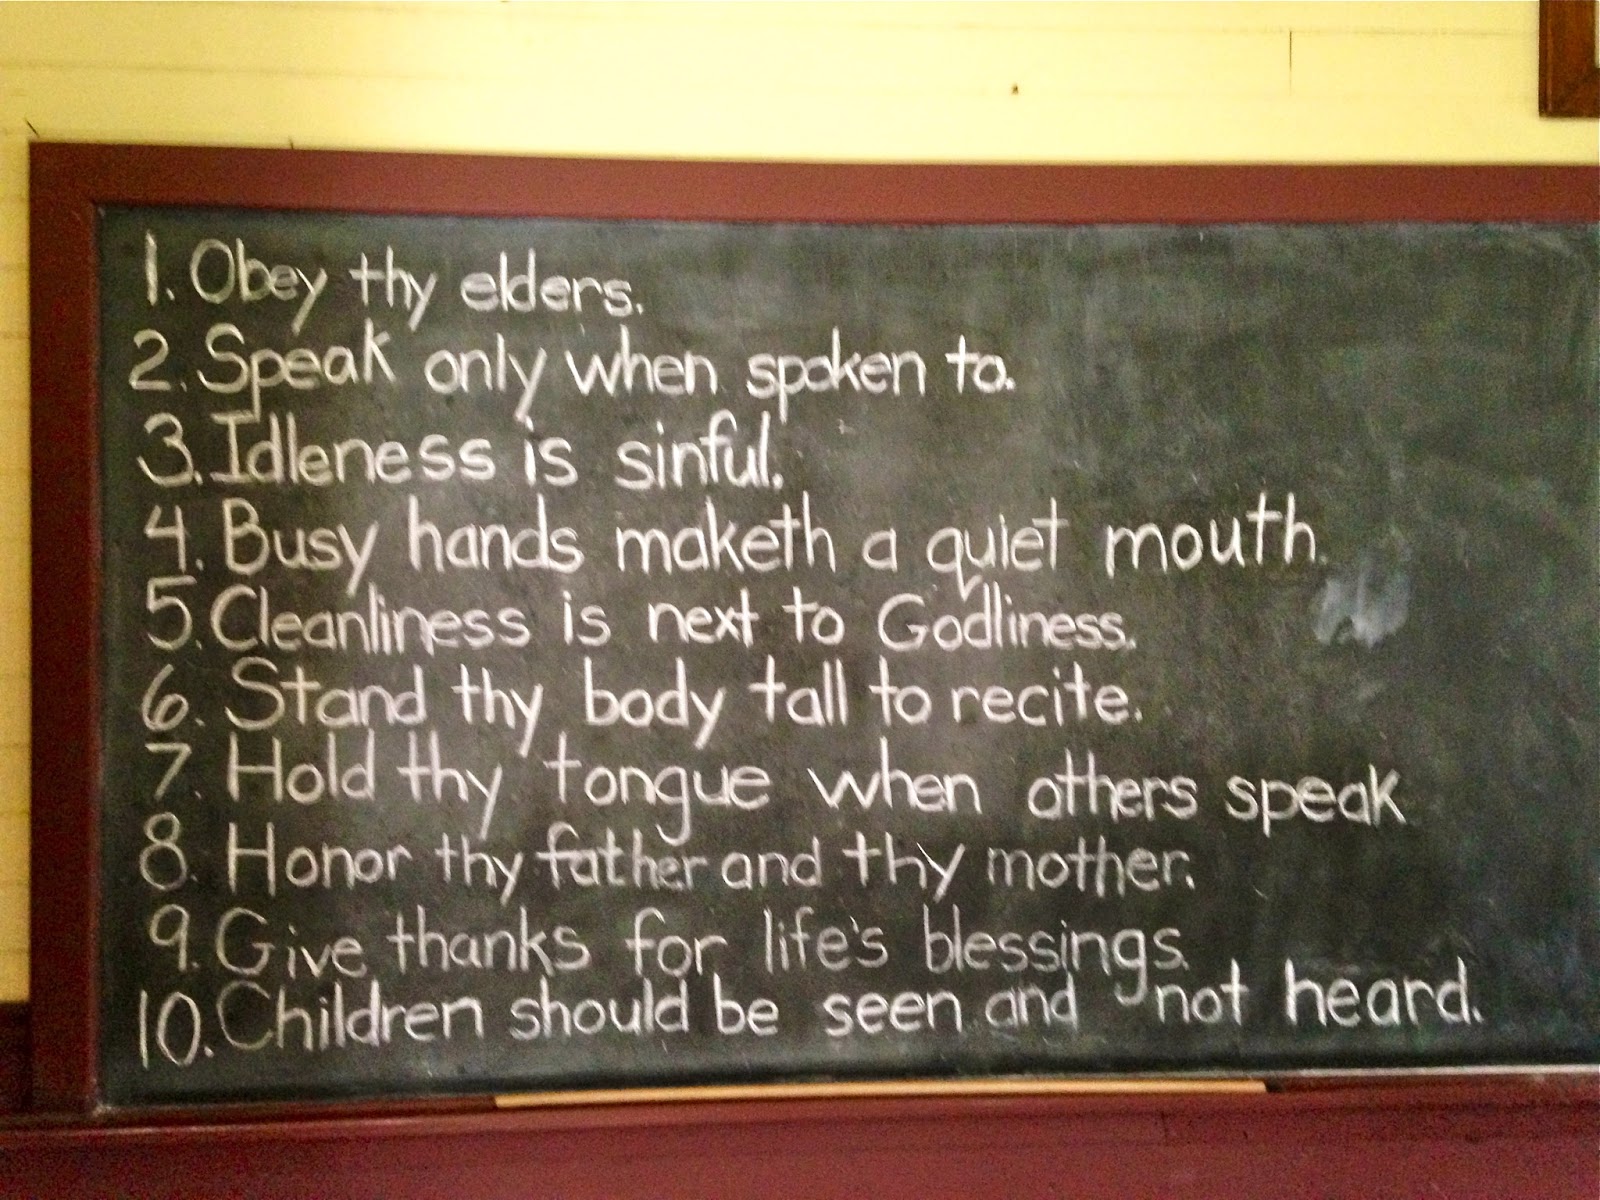 1. Obey thy elders.
2. Speak only when spoken to.
3. Idleness is sinful.
4. Busy hands maketh a quiet mouth.
5. Cleanliness is next to Godliness.
6. Stand thy body tall to recite.
7. Hold thy tongue when others speak
8. Honor thy father and thy mother.
9. Give thanks for life's blessings.
10. Children should be seen and not heard.